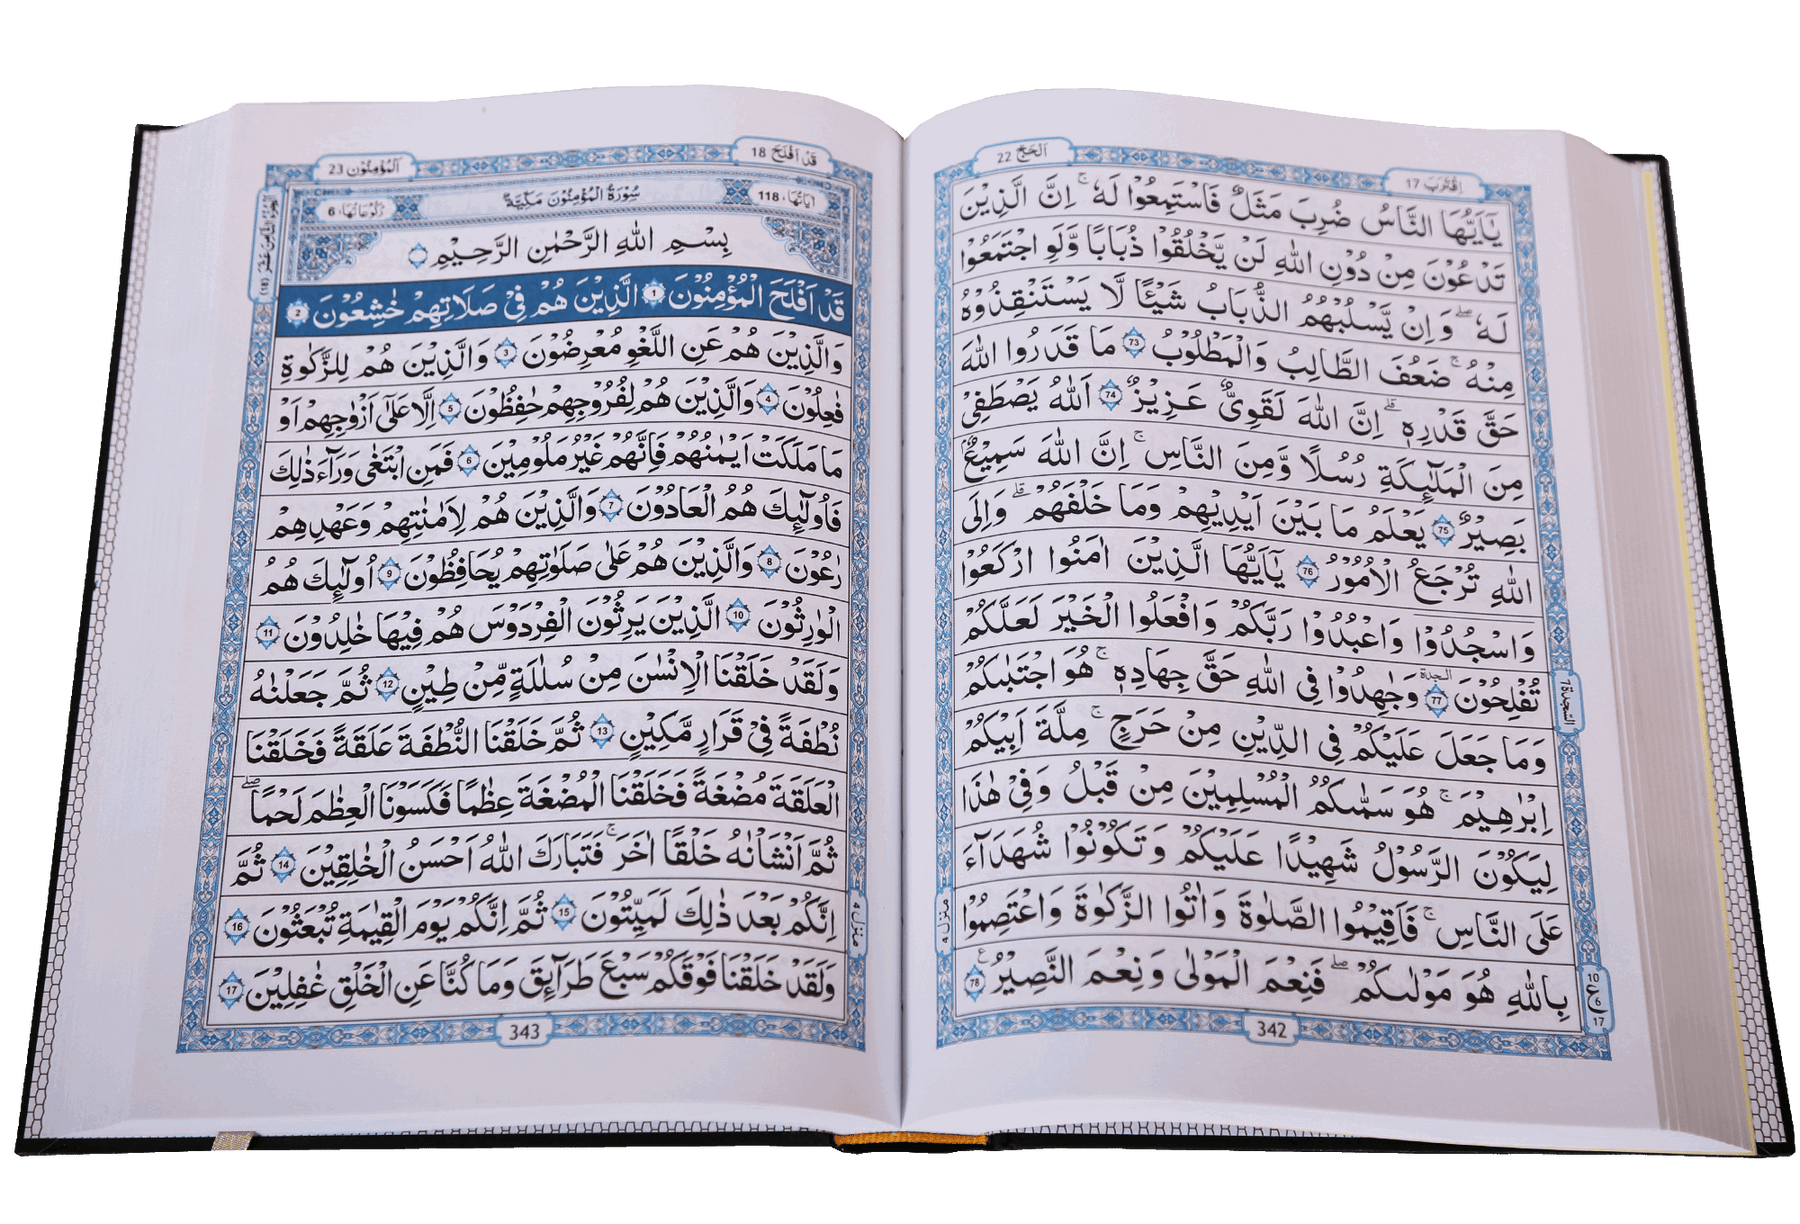 اَلْحَجّ 22
اِقْتَرَبَ 17
يٰۤاَيُّهَا النَّاسُ ضُرِبَ مَثَلٌ فَاسْتَمِعُوْا لَهٗ ؕ اِنَّ الَّذِيْنَ
تَدْعُوْنَ مِنْ دُوْنِ اللّٰهِ لَنْ يَّخْلُقُوْا ذُبَابًا وَّلَوِ اجْتَمَعُوْا
لَهٗ ؕ وَاِنْ يَّسْلُبْهُمُ الذُّبَابُ شَيْـًٔا لَّا يَسْتَنْقِذُوْهُ
مِنْهُ ؕ ضَعُفَ الطَّالِبُ وَالْمَطْلُوْبُ 73 مَا قَدَرُوا اللّٰهَ
حَقَّ قَدْرِهٖ ؕ اِنَّ اللّٰهَ لَقَوِيٌّ عَزِيْزٌ 74 اَللّٰهُ يَصْطَفِيْ
مِنَ الْمَلٰٓئِكَةِ رُسُلًا وَّمِنَ النَّاسِ ؕ اِنَّ اللّٰهَ سَمِيْعٌۢ
بَصِيْرٌ 75 يَعْلَمُ مَا بَيْنَ اَيْدِيْهِمْ وَمَا خَلْفَهُمْ ؕ وَاِلَى
اللّٰهِ تُرْجَعُ الْاُمُوْرُ 76 يٰۤاَيُّهَا الَّذِيْنَ اٰمَنُوا ارْكَعُوْا
وَاسْجُدُوْا وَاعْبُدُوْا رَبَّكُمْ وَافْعَلُوا الْخَيْرَ لَعَلَّكُمْ
تُفْلِحُوْنَ السجدة 77 وَجٰهِدُوْا فِى اللّٰهِ حَقَّ جِهَادِهٖ ؕ هُوَ اجْتَبٰىكُمْ
وَمَا جَعَلَ عَلَيْكُمْ فِى الدِّيْنِ مِنْ حَرَجٍ ؕ مِلَّةَ اَبِيْكُمْ
اِبْرٰهِيْمَ ؕ هُوَ سَمّٰىكُمُ الْمُسْلِمِيْنَ مِنْ قَبْلُ وَفِيْ هٰذَا
لِيَكُوْنَ الرَّسُوْلُ شَهِيْدًا عَلَيْكُمْ وَتَكُوْنُوْا شُهَدَآءَ
عَلَى النَّاسِ ؕ فَاَقِيْمُوا الصَّلٰوةَ وَاٰتُوا الزَّكٰوةَ وَاعْتَصِمُوْا
بِاللّٰهِ هُوَ مَوْلٰىكُمْ ؕ فَنِعْمَ الْمَوْلٰى وَنِعْمَ النَّصِيْرُ 78
السجدة 7
10
ع
6
17
منزل 4
342
قَدْ اَفْلَحَ 18
اَلْمُؤْمِنُوْن 23
اٰيَاتُهَا، 118
سُوْرَةُ الْمُؤْمِنُوْنَ مَكِّيَّةٌ
رُكُوْعَاتُهَا، 6
بِسْمِ اللّٰهِ الرَّحْمٰنِ الرَّحِيْمِ
قَدْ اَفْلَحَ الْمُؤْمِنُوْنَ 1 الَّذِيْنَ هُمْ فِيْ صَلَاتِهِمْ خٰشِعُوْنَ 2
وَالَّذِيْنَ هُمْ عَنِ اللَّغْوِ مُعْرِضُوْنَ 3 وَالَّذِيْنَ هُمْ لِلزَّكٰوةِ
فٰعِلُوْنَ 4 وَالَّذِيْنَ هُمْ لِفُرُوْجِهِمْ حٰفِظُوْنَ 5 اِلَّا عَلٰٓى اَزْوٰجِهِمْ اَوْ
مَا مَلَكَتْ اَيْمٰنُهُمْ فَاِنَّهُمْ غَيْرُ مَلُوْمِيْنَ 6 فَمَنِ ابْتَغٰى وَرَآءَ ذٰلِكَ
فَاُولٰٓئِكَ هُمُ الْعَادُوْنَ 7 وَالَّذِيْنَ هُمْ لِاَمٰنٰتِهِمْ وَعَهْدِهِمْ
رٰعُوْنَ 8 وَالَّذِيْنَ هُمْ عَلٰى صَلَوٰتِهِمْ يُحَافِظُوْنَ 9 اُولٰٓئِكَ هُمُ
الْوٰرِثُوْنَ 10 الَّذِيْنَ يَرِثُوْنَ الْفِرْدَوْسَ هُمْ فِيْهَا خٰلِدُوْنَ 11
وَلَقَدْ خَلَقْنَا الْاِنْسٰنَ مِنْ سُلٰلَةٍ مِّنْ طِيْنٍ 12 ثُمَّ جَعَلْنٰهُ
نُطْفَةً فِيْ قَرَارٍ مَّكِيْنٍ 13 ثُمَّ خَلَقْنَا النُّطْفَةَ عَلَقَةً فَخَلَقْنَا
الْعَلَقَةَ مُضْغَةً فَخَلَقْنَا الْمُضْغَةَ عِظٰمًا فَكَسَوْنَا الْعِظٰمَ لَحْمًا ۖ
ثُمَّ اَنْشَاْنٰهُ خَلْقًا اٰخَرَ ؕ فَتَبَارَكَ اللّٰهُ اَحْسَنُ الْخٰلِقِيْنَ 14 ثُمَّ
اِنَّكُمْ بَعْدَ ذٰلِكَ لَمَيِّتُوْنَ 15 ثُمَّ اِنَّكُمْ يَوْمَ الْقِيٰمَةِ تُبْعَثُوْنَ 16
وَلَقَدْ خَلَقْنَا فَوْقَكُمْ سَبْعَ طَرَآئِقَ وَمَا كُنَّا عَنِ الْخَلْقِ غٰفِلِيْنَ 17
منزل 4
343